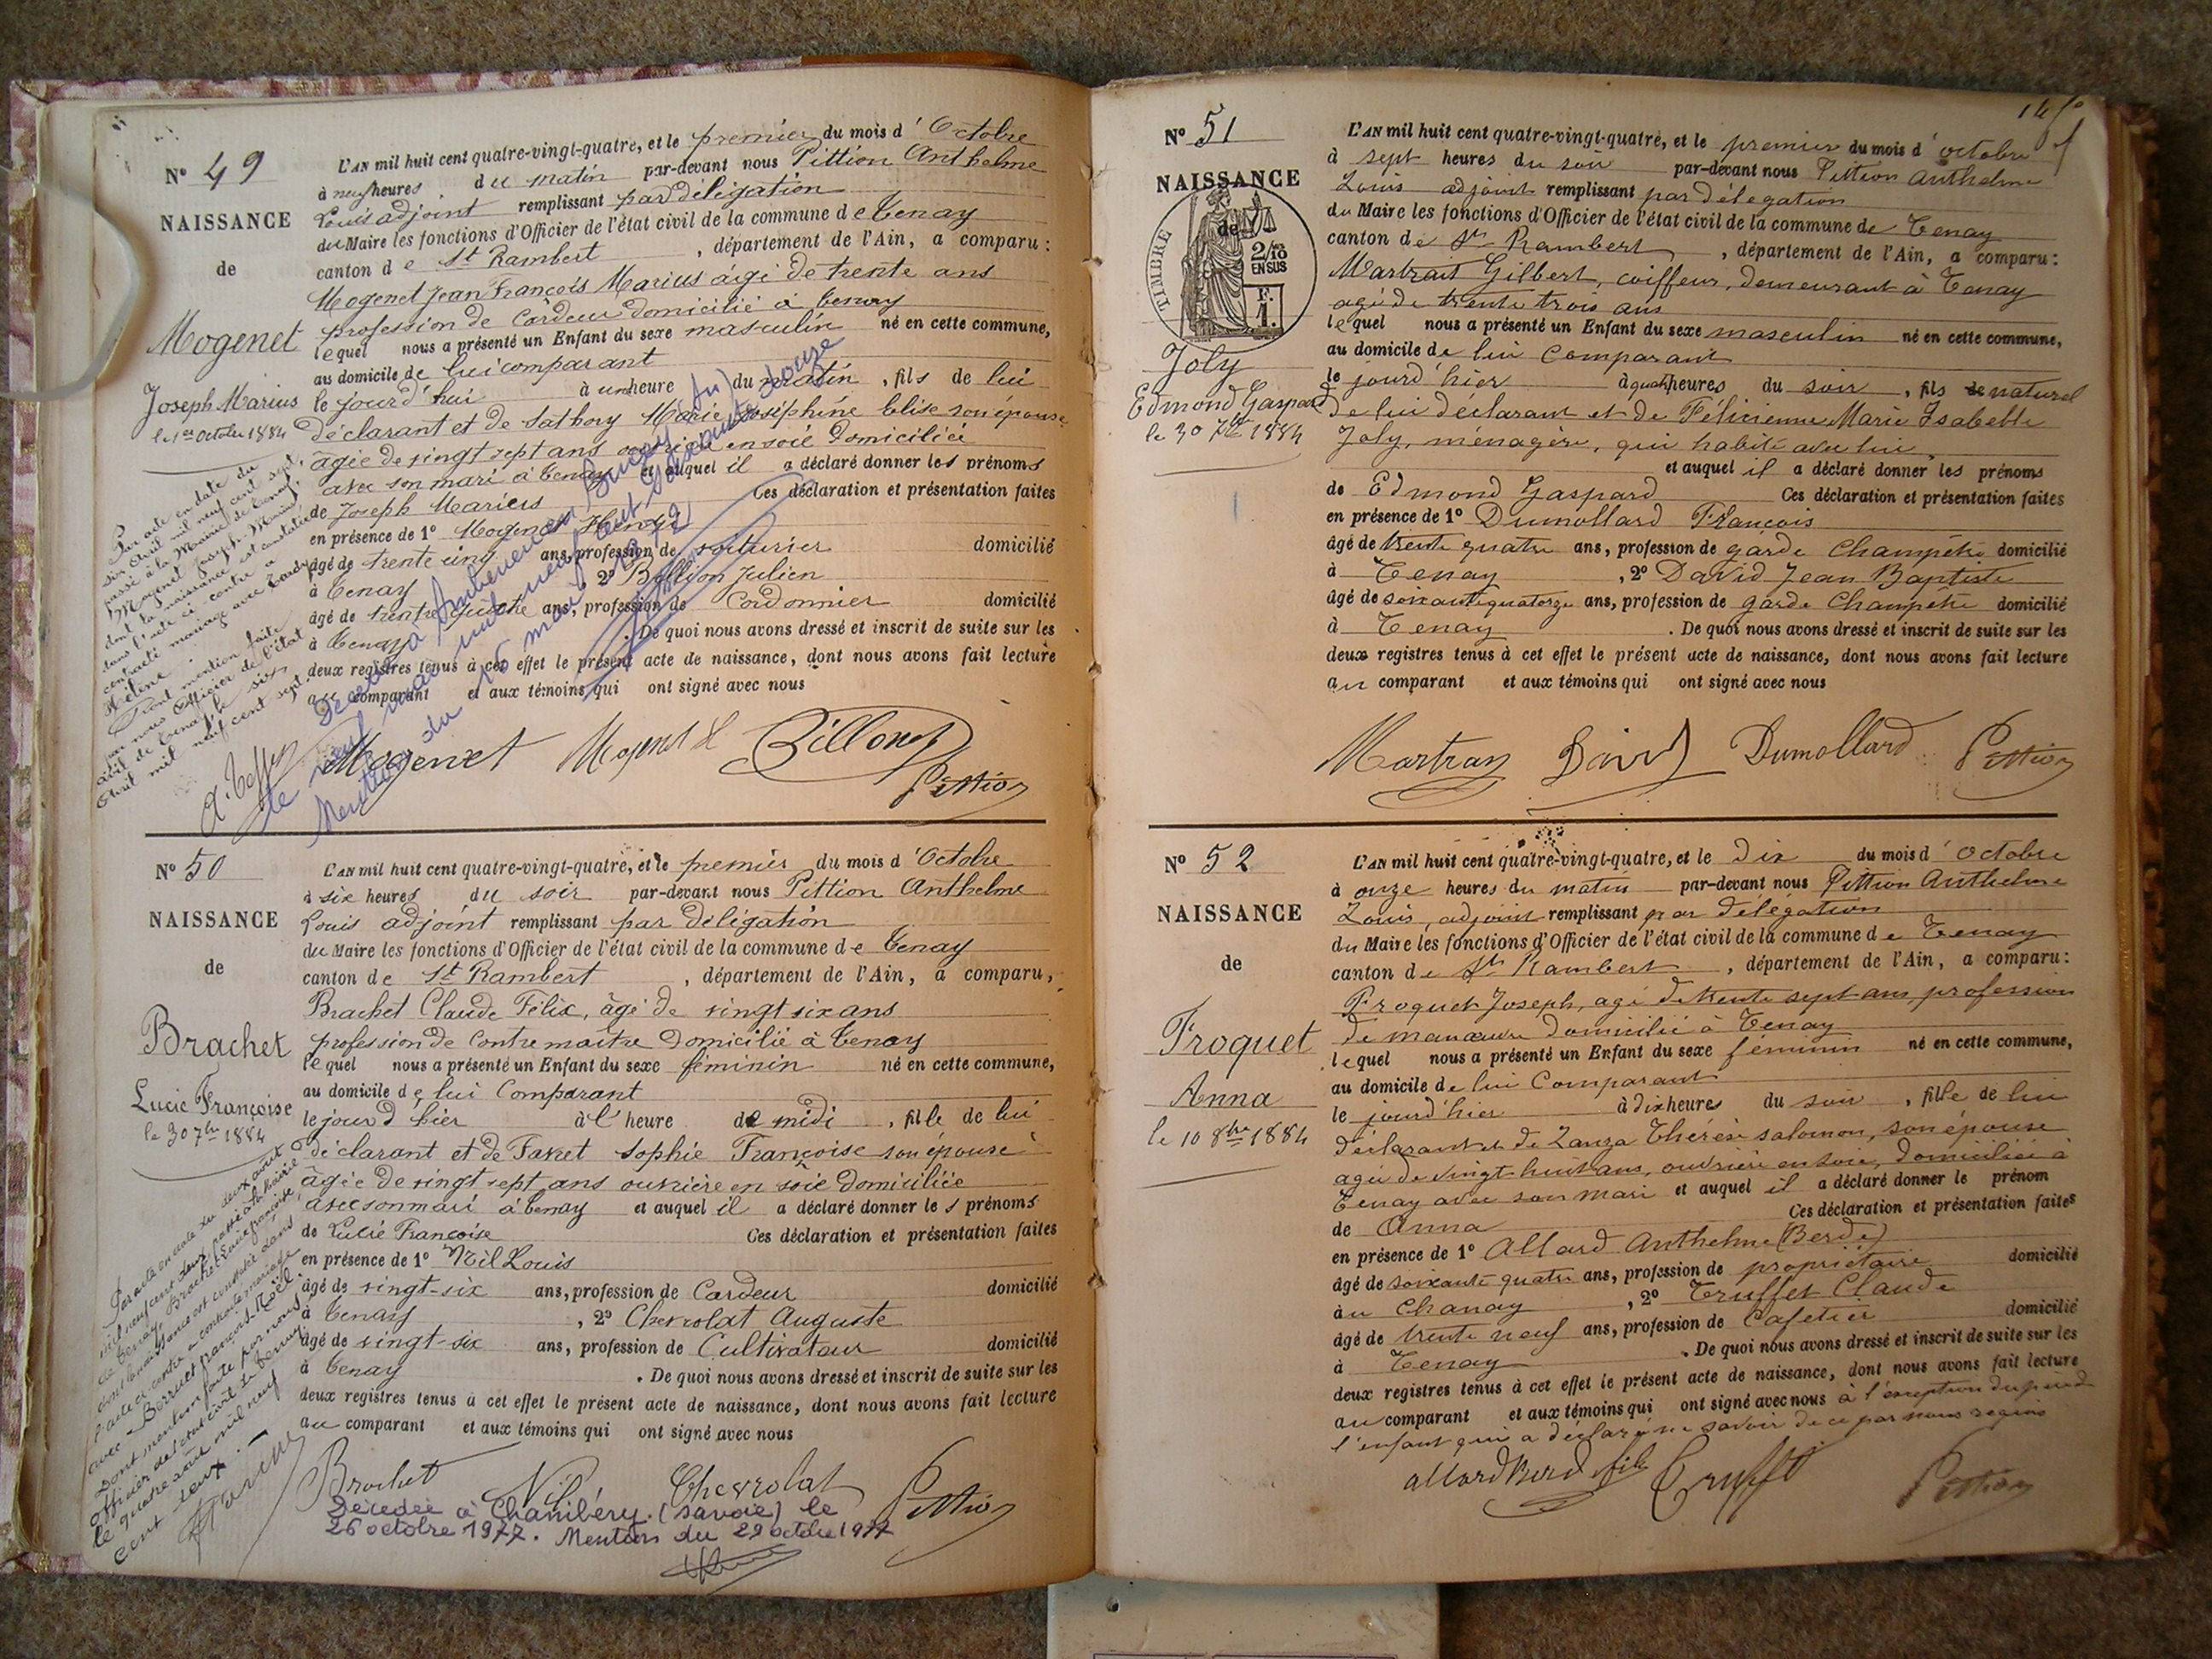 N° 49
NAISSANCE
de
Mogenet
Joseph Marius
le 1er Octobre 1884
L'AN mil huit cent quatre-vingt-quatre, et le premier du mois d'Octobre
à neuf heures du matin par-devant nous Pittion Anthelme
Louis adjoint remplissant par délégation
du Maire les fonctions d'Officier de l'état civil de la commune de Tenay
canton de St Rambert, département de l'Ain, a comparu:
Mogenet Jean François Marius âgé de trente ans
profession de Cardeur domicilié à Tenay
lequel nous a présenté un Enfant du sexe masculin né en cette commune,
au domicile de lui comparant
le jourd'hui à une heure du matin, fils de lui
déclarant et de Sathory Marie Joséphine Elise son épouse
âgée de vingt sept ans ouvrière en soie domiciliée
avec son mari à Tenay et auquel il a déclaré donner les prénoms
de Joseph Marius Ces déclaration et présentation faites
en présence de 1° Mogenet Henry
âgé de trente cinq ans, profession de voiturier domicilié
à Tenay, 2° Billion Julien
âgé de trente quatre ans, profession de Cordonnier domicilié
à Tenay. De quoi nous avons dressé et inscrit de suite sur les
deux registres tenus à cet effet le présent acte de naissance, dont nous avons fait lecture
au comparant et aux témoins qui ont signé avec nous
Mogenet Mogenet H Billion
Pittion
Par acte en date du
six Avril mil neuf cent sept,
passé à la Mairie de Tenay,
Mogenet Joseph-Marius,
dont la naissance est constatée
dans l'acte ci-contre a
contracté mariage avec Tardy
Hélène
Dont mention faite
par nous Officier de l'état
civil de Tenay, le six
Avril mil neuf cent sept
Décédé à Ambérieu en Bugey (Ain)
le neuf mai mil neuf cent soixante douze
Mention du 15 mai 1972
N° 50
NAISSANCE
de
Brachet
Lucie Françoise
le 30 7bre 1884
L'AN mil huit cent quatre-vingt-quatre, et le premier du mois d'Octobre
à six heures du soir par-devant nous Pittion Anthelme
Louis adjoint remplissant par délégation
du Maire les fonctions d'Officier de l'état civil de la commune de Tenay
canton de St Rambert, département de l'Ain, a comparu,
Brachet Claude Félix, âgé de vingt six ans
profession de Contre maitre domicilié à Tenay
lequel nous a présenté un Enfant du sexe féminin né en cette commune,
au domicile de lui Comparant
le jour d'hier à l'heure de midi, fille de lui
déclarant et de Favet Sophie Françoise son épouse
âgée de vingt sept ans ouvrière en soie domiciliée
avec son mari à Tenay et auquel il a déclaré donner les prénoms
de Lucie Françoise Ces déclaration et présentation faites
en présence de 1° Nil Louis
âgé de vingt-six ans, profession de Cardeur domicilié
à Tenay, 2° Chevrolat Auguste
âgé de vingt-six ans, profession de Cultivateur domicilié
à Tenay. De quoi nous avons dressé et inscrit de suite sur les
deux registres tenus à cet effet le présent acte de naissance, dont nous avons fait lecture
au comparant et aux témoins qui ont signé avec nous
Brachet Nil Chevrolat Pittion
Décédée à Chambéry (Savoie) le
26 octobre 1977. Mention du 29 octobre 1977
Par acte en date du deux août
mil neuf cent deux, passé à la Mairie
de Tenay, Brachet Lucie françoise,
dont la naissance est constatée dans
l'acte ci-contre a contracté mariage
avec Berruet françois Noël
Dont mention faite par nous
officier de l'état civil de Tenay
le quatre août mil neuf
cent deux
N° 51
NAISSANCE
de
TIMBRE
2/10
EN SUS
F.
1.
Joly
Edmond Gaspard
le 30 7bre 1884
L'AN mil huit cent quatre-vingt-quatre, et le premier du mois d'octobre
à sept heures du soir par-devant nous Pittion Anthelme
Louis adjoint remplissant par délégation
du Maire les fonctions d'Officier de l'état civil de la commune de Tenay
canton de St Rambert, département de l'Ain, a comparu:
Martrait Gilbert, coiffeur, demeurant à Tenay
agé de trente trois ans
lequel nous a présenté un Enfant du sexe masculin né en cette commune,
au domicile de lui comparant
le jourd'hier à quatre heures du soir, fils de naturel
de lui déclarant et de Félicienne Marie Isabelle
Joly, ménagère, qui habite avec lui
et auquel il a déclaré donner les prénoms
de Edmond Gaspard Ces déclaration et présentation faites
en présence de 1° Dumollard François
âgé de trente quatre ans, profession de garde Champêtre domicilié
à Tenay, 2° David Jean Baptiste
âgé de soixante quatorze ans, profession de garde Champêtre domicilié
à Tenay. De quoi nous avons dressé et inscrit de suite sur les
deux registres tenus à cet effet le présent acte de naissance, dont nous avons fait lecture
au comparant et aux témoins qui ont signé avec nous
Martray David Dumollard Pittion
N° 52
NAISSANCE
de
Froquet
Anna
le 10 8bre 1884
L'AN mil huit cent quatre-vingt-quatre, et le dix du mois d'octobre
à onze heures du matin par-devant nous Pittion Anthelme
Louis, adjoint remplissant par délégation
du Maire les fonctions d'Officier de l'état civil de la commune de Tenay
canton de St Rambert, département de l'Ain, a comparu:
Froquet Joseph, agé de trente sept ans, profession
de manœuvre domicilié à Tenay
lequel nous a présenté un Enfant du sexe féminin né en cette commune,
au domicile de lui Comparant
le jourd'hier à dix heures du soir, fille de lui
déclarant et de Zanga Thérèse Salomon, son épouse
agée de vingt-huit ans, ouvrière en soie, domiciliée à
Tenay avec son mari et auquel il a déclaré donner le prénom
de Anna Ces déclaration et présentation faites
en présence de 1° Allard Anthelme (Berde)
âgé de soixante quatre ans, profession de propriétaire domicilié
au Chanay, 2° Truffet Claude
âgé de trente neuf ans, profession de Cafetier domicilié
à Tenay. De quoi nous avons dressé et inscrit de suite sur les
deux registres tenus à cet effet le présent acte de naissance, dont nous avons fait lecture
au comparant et aux témoins qui ont signé avec nous à l'exception du père de
l'enfant qui a déclaré ne savoir de ce par nous requis
Allard Berd fils Truffet Pittion